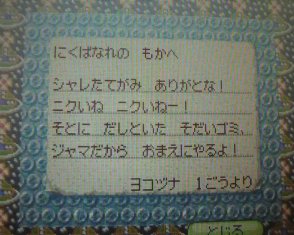 にくばなれの　もかへ
シャレたてがみ　ありがとな！
ニクいね　ニクいねー！
そとに　だしといた　そだいゴミ、
ジャマだから　おまえにやるよ！
ヨコヅナ　１ごうより
とじる